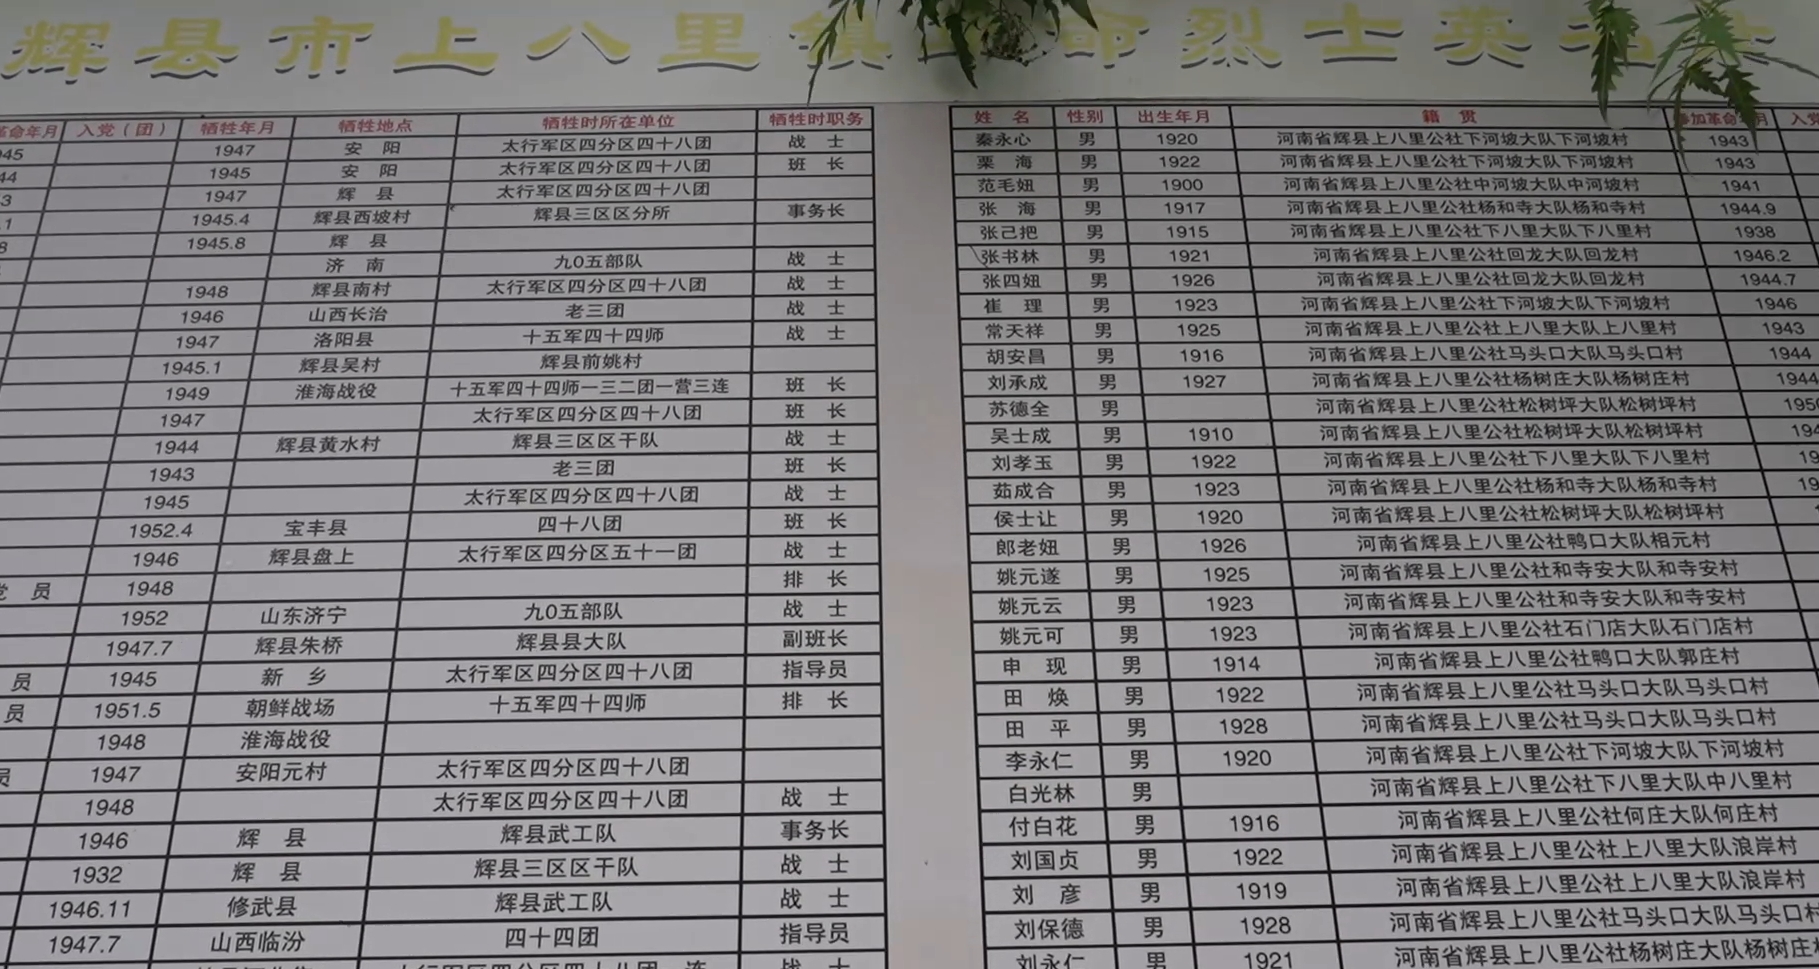 辉县市上八里镇 命烈士英名
革命年月 入党（团） 牺牲年月 牺牲地点 牺牲时所在单位 牺牲时职务
45 1947 安阳 太行军区四分区四十八团 战士
44 1945 安阳 太行军区四分区四十八团 班长
3 1947 辉县 太行军区四分区四十八团
.1 1945.4 辉县西坡村 辉县三区区分所 事务长
8 1945.8 辉县
济南 九0五部队 战士
1948 辉县南村 太行军区四分区四十八团 战士
1946 山西长治 老三团 战士
1947 洛阳县 十五军四十四师 战士
1945.1 辉县吴村 辉县前姚村
1949 淮海战役 十五军四十四师一三二团一营三连 班长
1947 太行军区四分区四十八团 班长
1944 辉县黄水村 辉县三区区干队 战士
1943 老三团 班长
1945 太行军区四分区四十八团 战士
1952.4 宝丰县 四十八团 班长
1946 辉县盘上 太行军区四分区五十一团 战士
党员 1948 排长
1952 山东济宁 九0五部队 战士
1947.7 辉县朱桥 辉县县大队 副班长
员 1945 新乡 太行军区四分区四十八团 指导员
员 1951.5 朝鲜战场 十五军四十四师 排长
1948 淮海战役
员 1947 安阳元村 太行军区四分区四十八团
1948 太行军区四分区四十八团 战士
1946 辉县 辉县武工队 事务长
1932 辉县 辉县三区区干队 战士
1946.11 修武县 辉县武工队 战士
1947.7 山西临汾 四十四团 指导员
太行军区四分区四十八团一连 战士
姓名 性别 出生年月 籍贯 参加革命年月 入党
秦永心 男 1920 河南省辉县上八里公社下河坡大队下河坡村 1943
栗海 男 1922 河南省辉县上八里公社下河坡大队下河坡村 1943
范毛妞 男 1900 河南省辉县上八里公社中河坡大队中河坡村 1941
张海 男 1917 河南省辉县上八里公社杨和寺大队杨和寺村 1944.9
张己把 男 1915 河南省辉县上八里公社下八里大队下八里村 1938
张书林 男 1921 河南省辉县上八里公社回龙大队回龙村 1946.2
张四妞 男 1926 河南省辉县上八里公社回龙大队回龙村 1944.7
崔理 男 1923 河南省辉县上八里公社下河坡大队下河坡村 1946
常天祥 男 1925 河南省辉县上八里公社上八里大队上八里村 1943
胡安昌 男 1916 河南省辉县上八里公社马头口大队马头口村 1944
刘承成 男 1927 河南省辉县上八里公社杨树庄大队杨树庄村 1944
苏德全 男 河南省辉县上八里公社松树坪大队松树坪村 1950
吴士成 男 1910 河南省辉县上八里公社松树坪大队松树坪村 194
刘孝玉 男 1922 河南省辉县上八里公社下八里大队下八里村 19
茹成合 男 1923 河南省辉县上八里公社杨和寺大队杨和寺村 19
侯士让 男 1920 河南省辉县上八里公社松树坪大队松树坪村
郎老妞 男 1926 河南省辉县上八里公社鸭口大队相元村
姚元遂 男 1925 河南省辉县上八里公社和寺安大队和寺安村
姚元云 男 1923 河南省辉县上八里公社和寺安大队和寺安村
姚元可 男 1923 河南省辉县上八里公社石门店大队石门店村
申现 男 1914 河南省辉县上八里公社鸭口大队郭庄村
田焕 男 1922 河南省辉县上八里公社马头口大队马头口村
田平 男 1928 河南省辉县上八里公社马头口大队马头口村
李永仁 男 1920 河南省辉县上八里公社下河坡大队下河坡村
白光林 男 河南省辉县上八里公社下八里大队中八里村
付白花 男 1916 河南省辉县上八里公社何庄大队何庄村
刘国贞 男 1922 河南省辉县上八里公社上八里大队浪岸村
刘彦 男 1919 河南省辉县上八里公社上八里大队浪岸村
刘保德 男 1928 河南省辉县上八里公社马头口大队马头口村
刘永仁 男 1921 河南省辉县上八里公社杨树庄大队杨树庄村